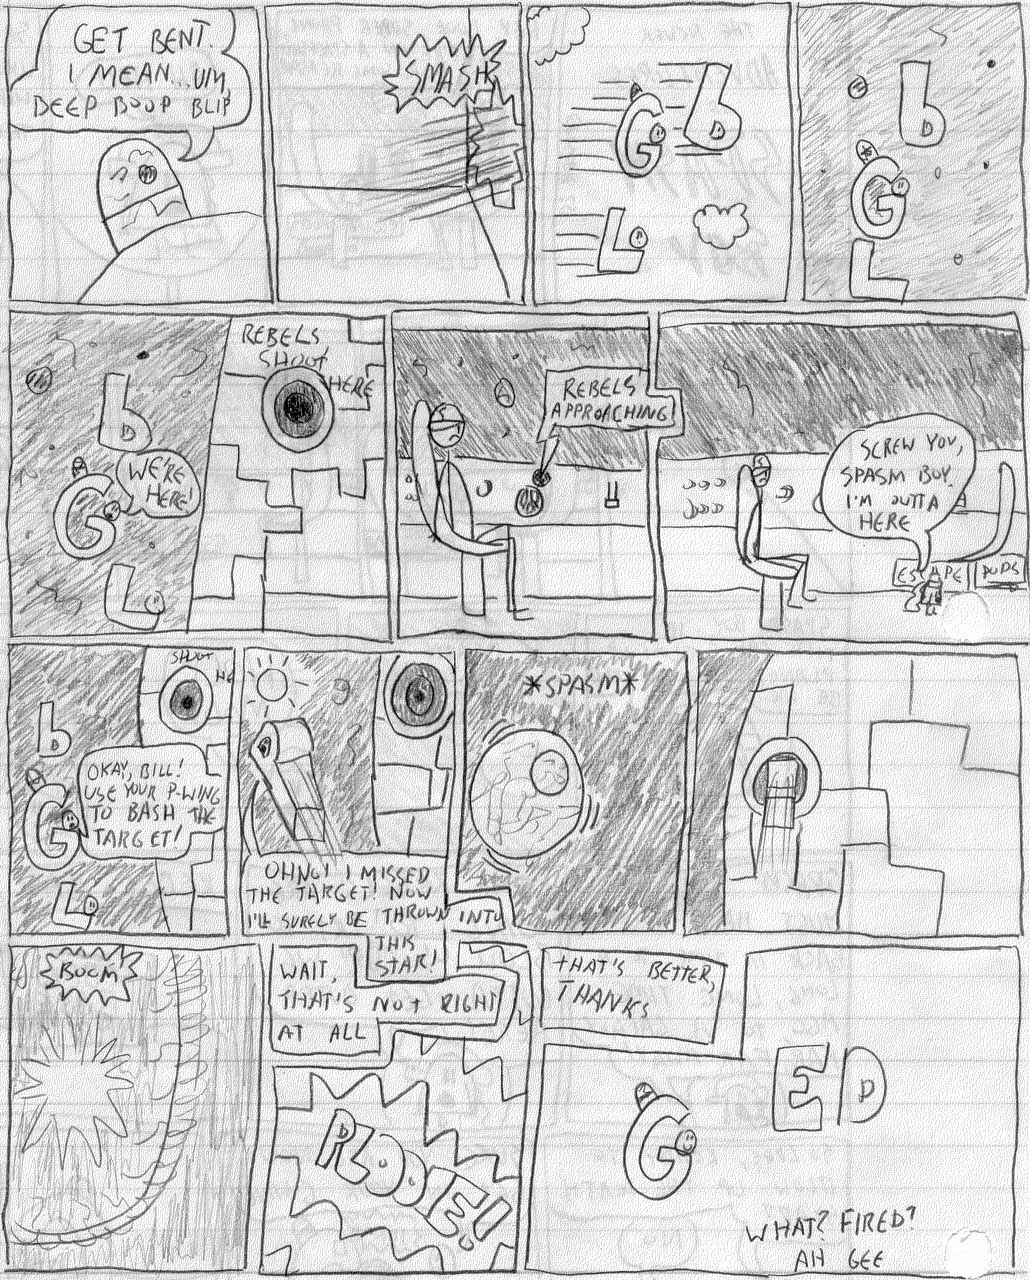 GET BENT.
I MEAN...UM,
DEEP BOOP BLIP
SMASH
G
b
L
b
G
L
b
G
L
WE'RE
HERE!
REBELS
SHOOT
HERE
REBELS
APPROACHING!
SCREW YOU,
SPASM BOY.
I'M OUTTA
HERE
ES PE PODS
SHOOT
HE
b
G
L
OKAY, BILL!
USE YOUR P-WING
TO BASH THE
TARGET!
OHNO! I MISSED
THE TARGET! NOW
I'LL SURELY BE THROWN INTO
THIS
STAR!
*SPASM*
BOOM
WAIT,
THAT'S NOT RIGHT
AT ALL
PLODIE!
THAT'S BETTER,
THANKS
G
E D
WHAT? FIRED?
AH GEE